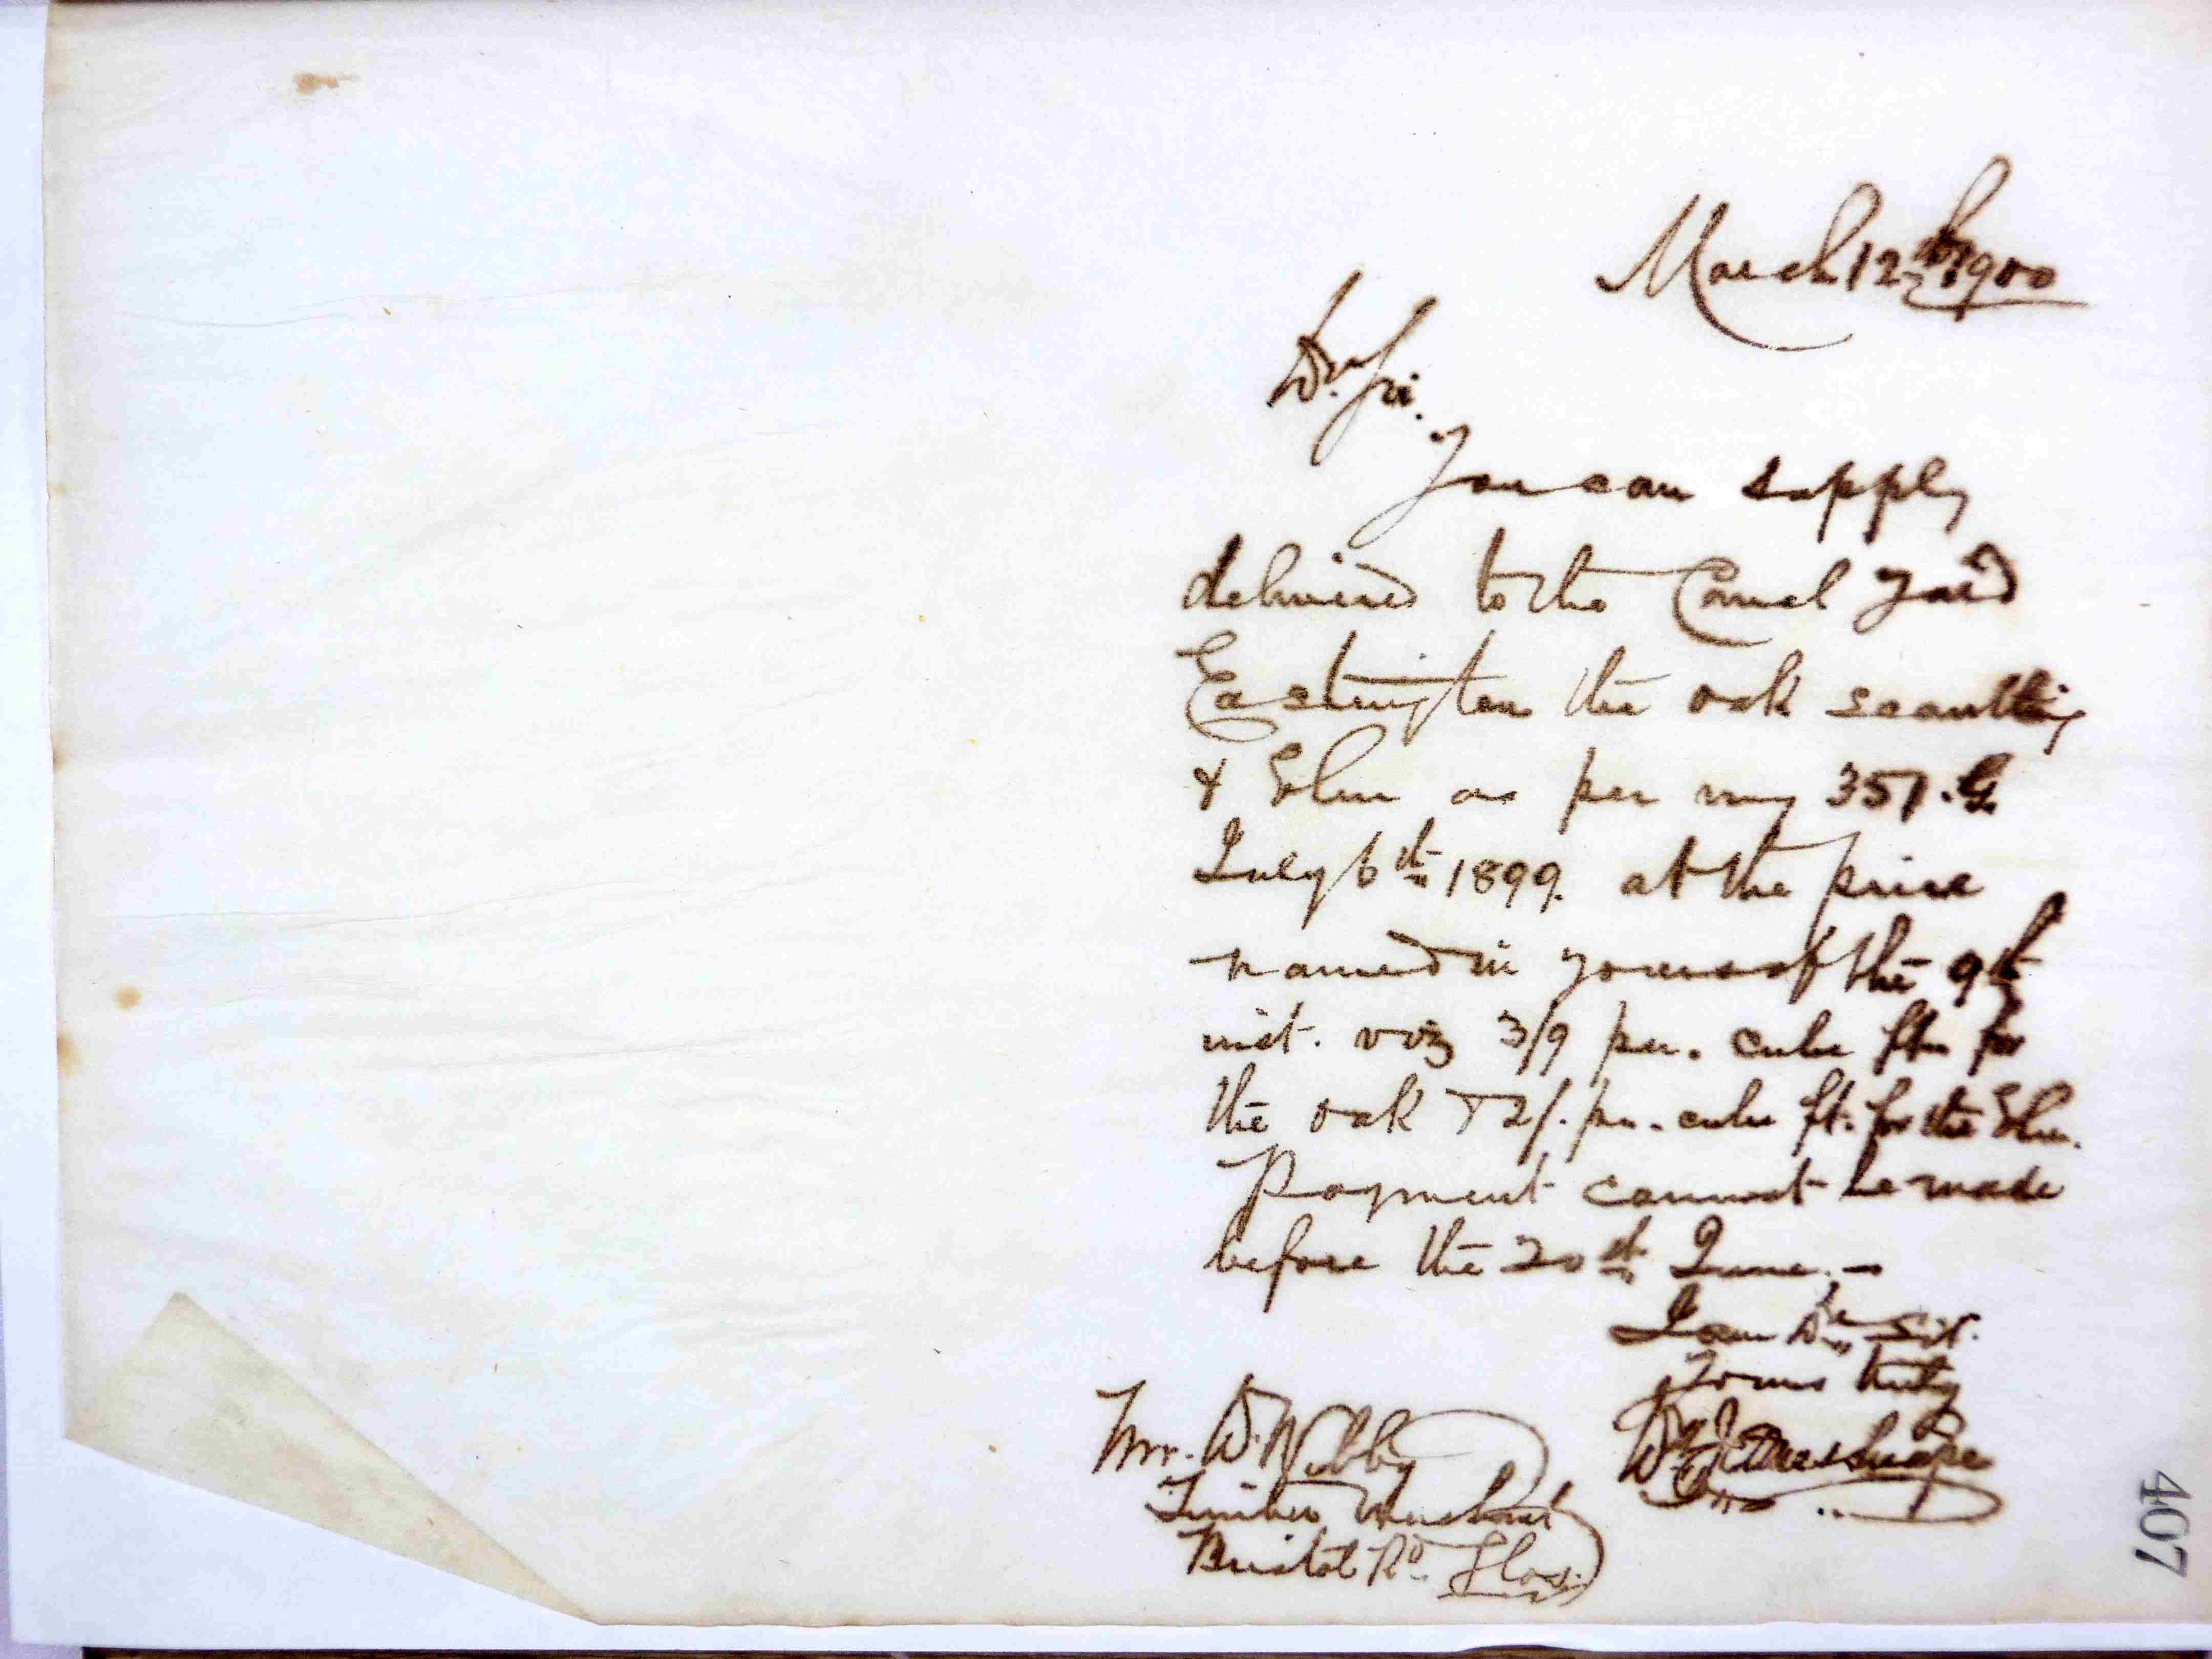 March 12th 1900
Dr. Sir.
You can supply
delivered to the Canal Yard
Eastington the oak scantling
& Elm as per my 357.G.
July 6th 1899. at the price
named in yours of the 9th
inst. viz 3/9 per. cube ft. for
the oak & 2/- per. cube ft. for the Elm.
Payment cannot be made
before the 20th June. –
I am Dr Sir.
Yours truly
Mr. W. Nibbs
Timber Merchant
Bristol Rd. Glos.
407